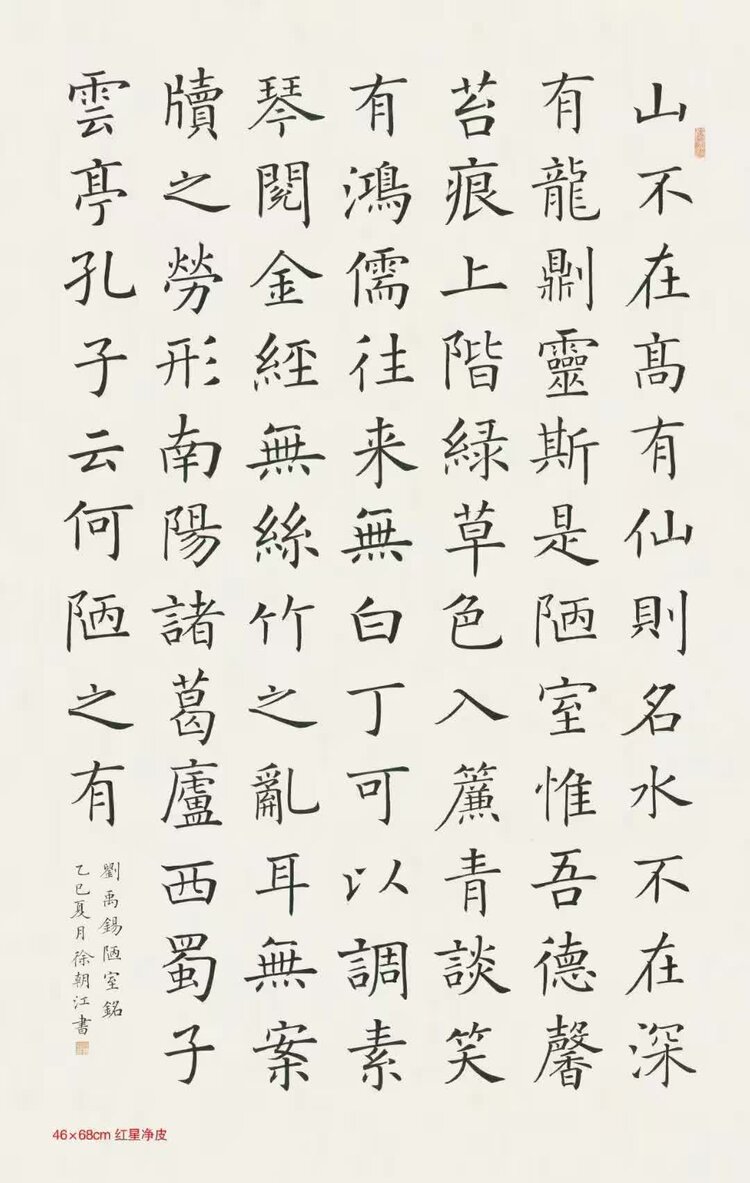 山不在高有仙則名水不在深
有龍劘靈斯是陋室惟吾德馨
苔痕上階緑草色入簾青談笑
有鴻儒往来無白丁可以調素
琴閱金經無絲竹之亂耳無案
牘之勞形南陽諸葛廬西蜀子
雲亭孔子云何陋之有
劉禹錫陋室銘
乙巳夏月徐朝江書
46×68cm 红星净皮